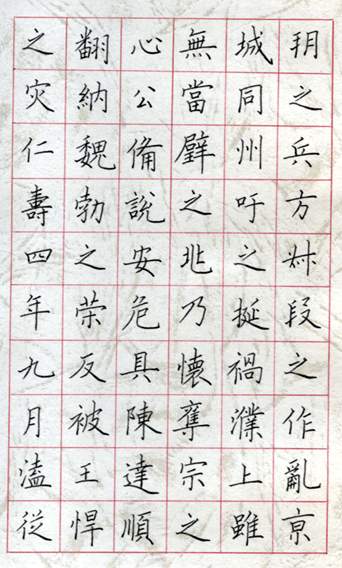 玥之兵方叔段之作亂亰
城同州吁之挻禍濮上雖
無當璧之兆乃懷奪宗之
心公備說安危具陳達順
翻納魏勃之荣反被王悍
之灾仁壽四年九月溘從